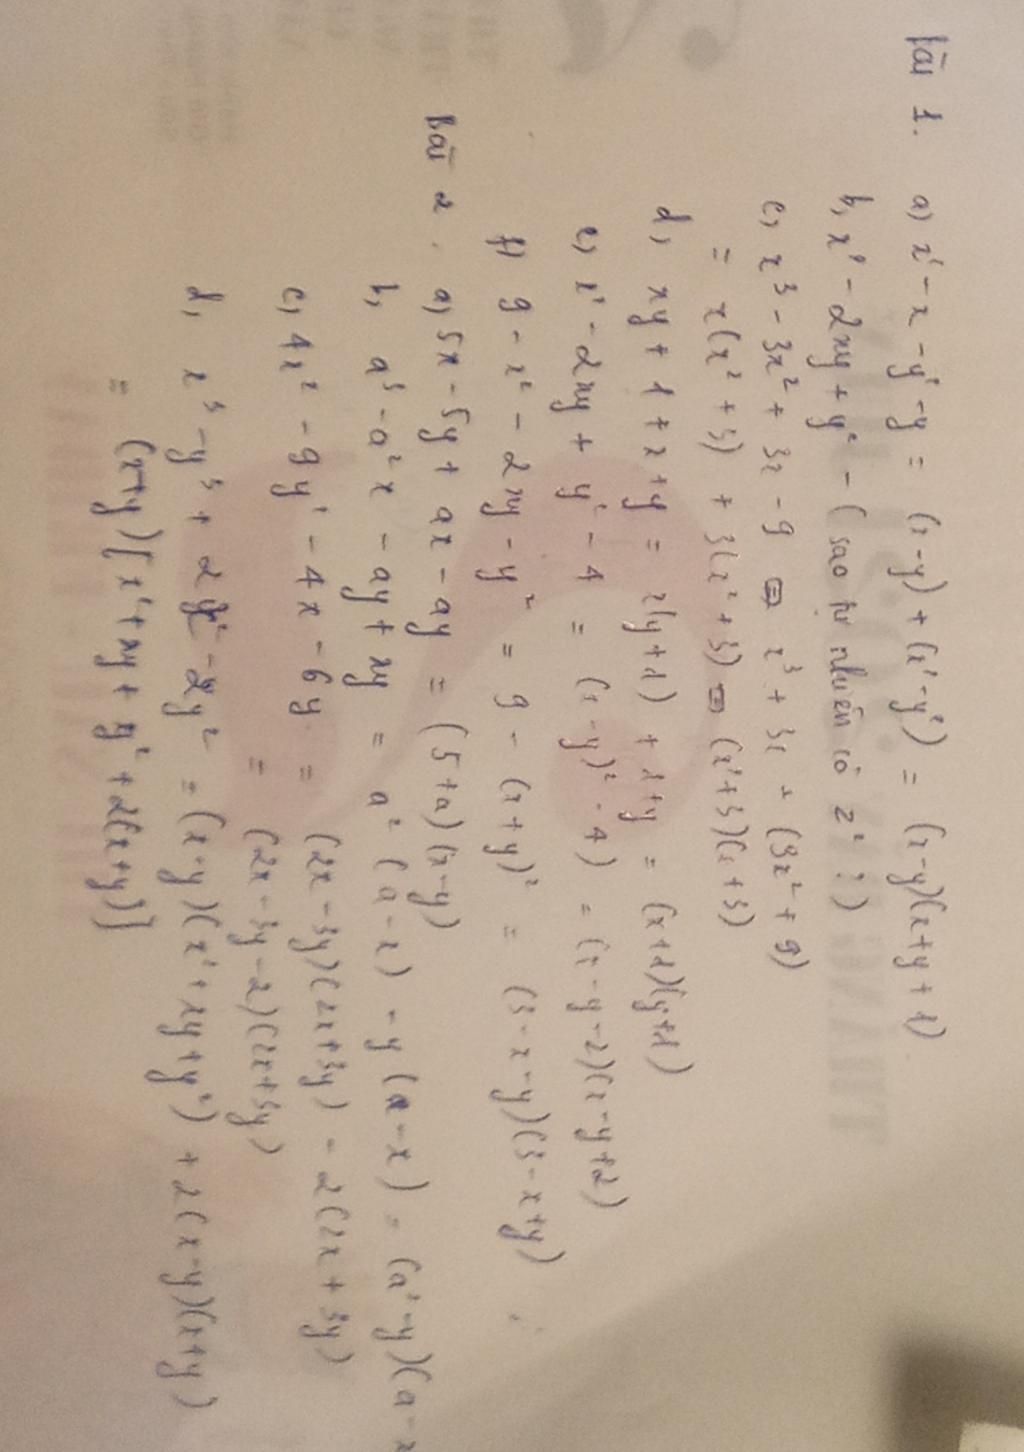 Bài 1. a) x² - x - y² - y = (x-y) + (x² - y²) = (x-y)(x+y+1)
b, x² - 2xy + y² - ( sao tự nhiên có z² ? )
c, x³ - 3x² + 3x - 9 = x³ + 3x + (3x² + 9)
= x(x² + 3) + 3(x² + 3) = (x²+3)(x+3)
d, xy + 1 + x + y = x(y+1) + 1+y = (x+1)(y+1)
e, x² - 2xy + y² - 4 = (x-y)² - 4) = (x-y-2)(x-y+2)
f) 9 - x² - 2xy - y² = 9 - (x+y)² = (3-x-y)(3-x+y)
Bài 2. a, 5x - 5y + ax - ay = (5+a)(x-y)
b, a³ - a²x - ay + xy = a²(a-x) - y(a-x) = (a²-y)(a-x
c, 4x² - 9y² - 4x - 6y = (2x-3y)(2x+3y) - 2(2x+3y)
= (2x-3y-2)(2x+3y)
d, x³ - y³ + 2 - 2y² = (x-y)(x²+xy+y²) + 2(x-y)(x+y)
= (x+y)[x²+xy+y²+2(x+y)]